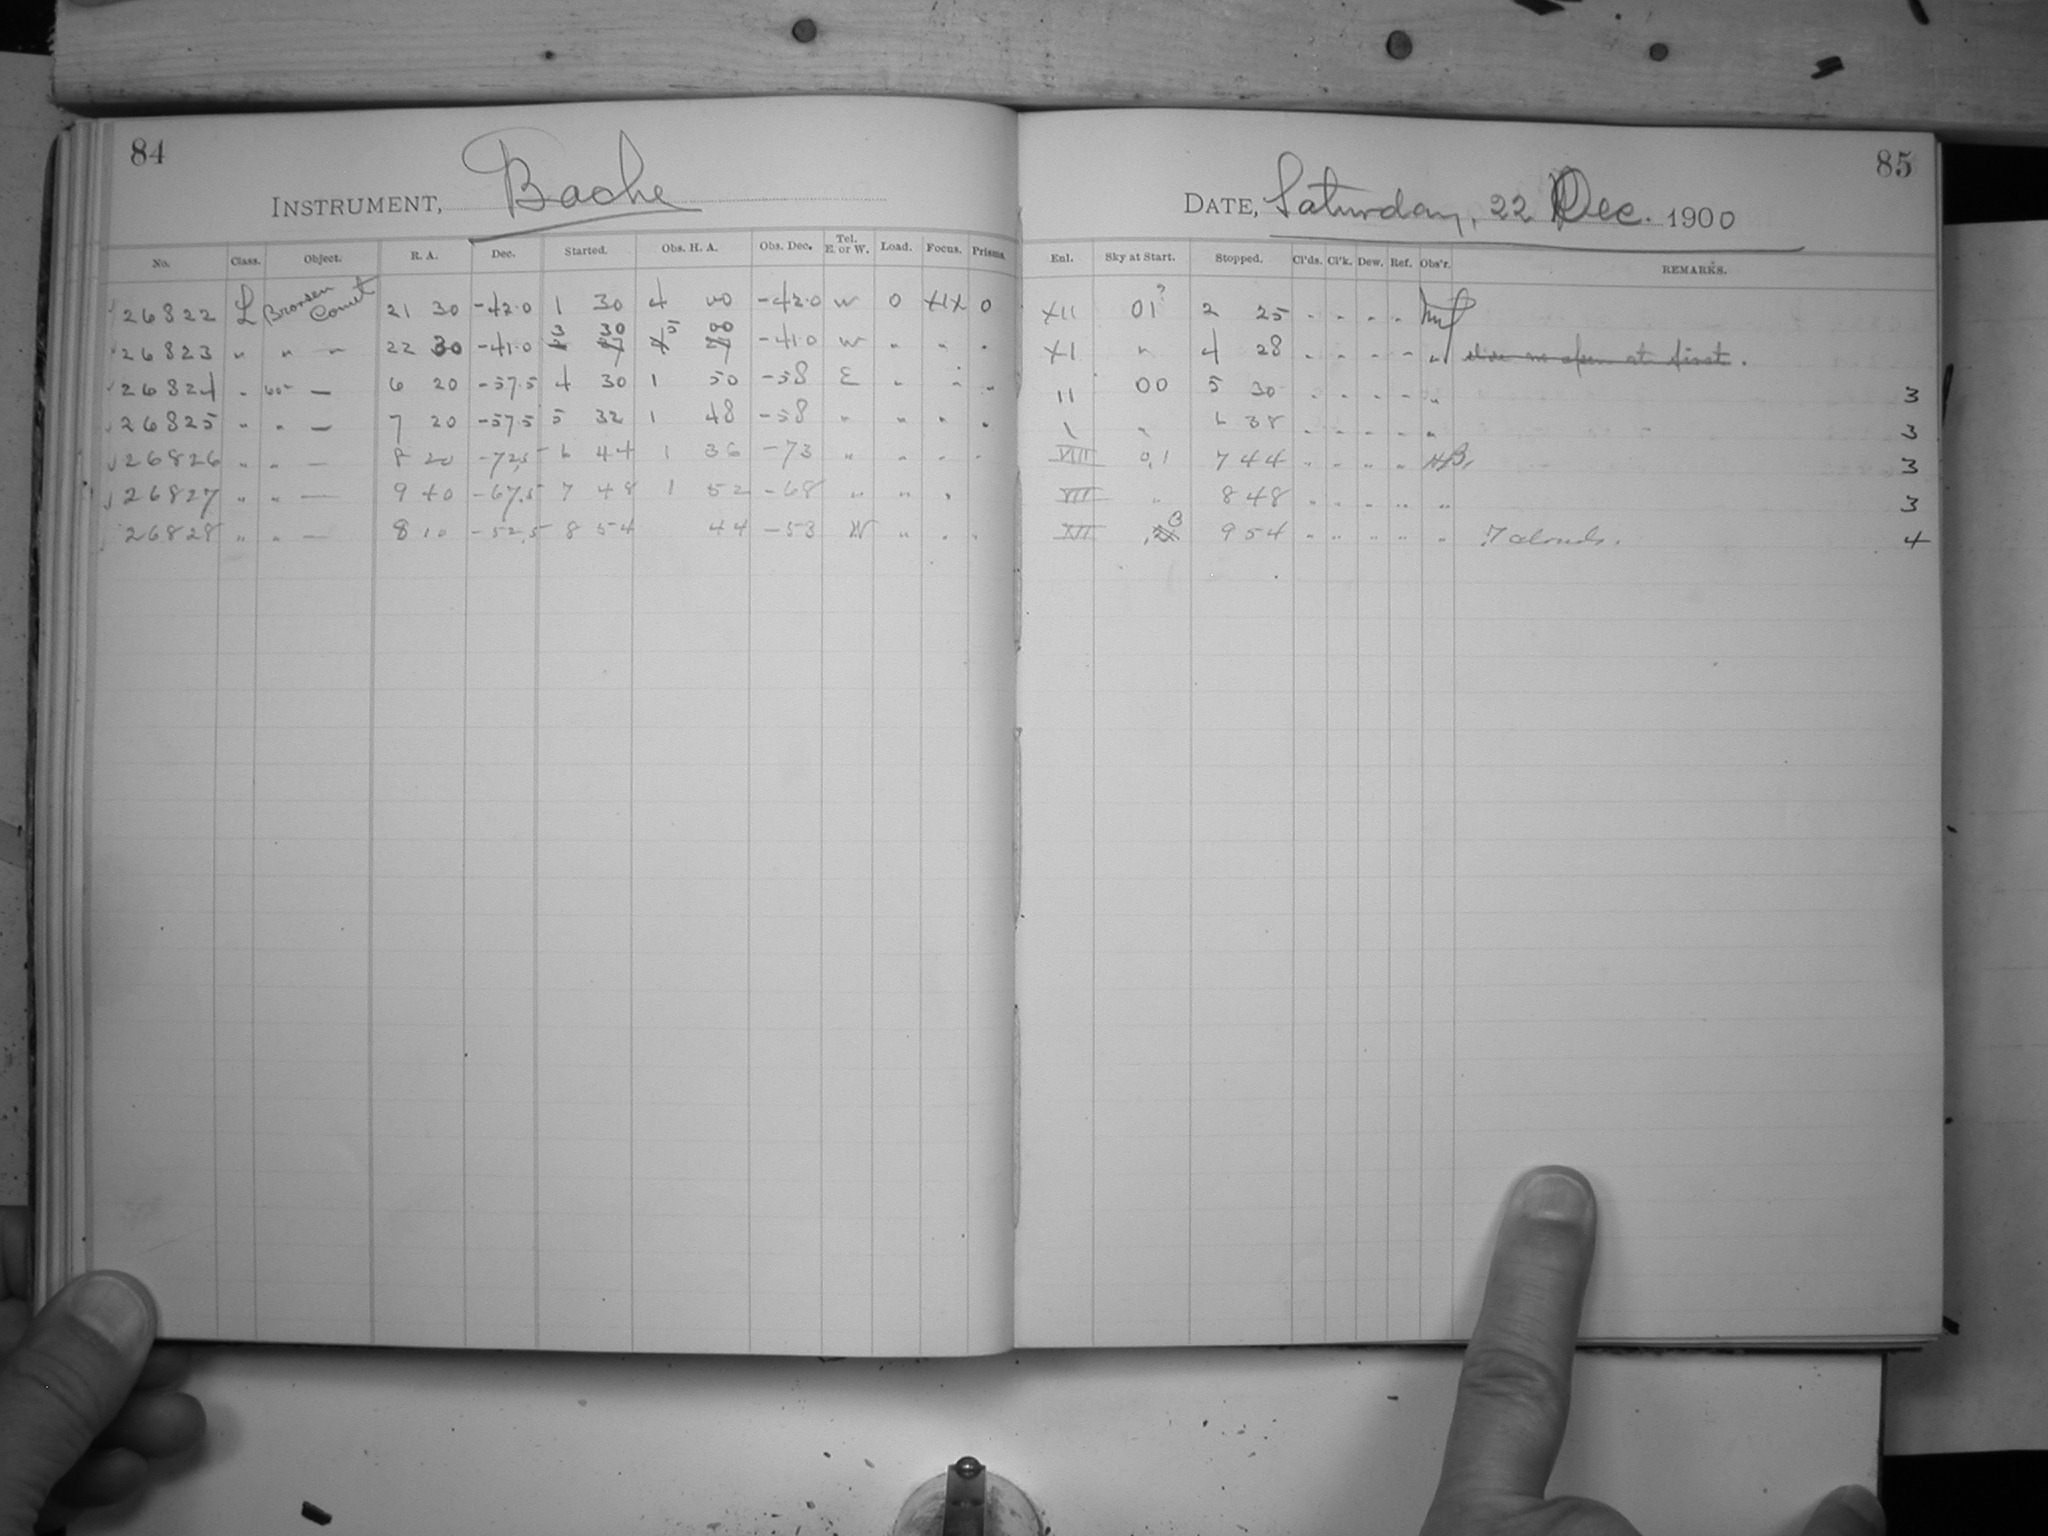 84
INSTRUMENT, Bache
No. Class. Object. R. A. Dec. Started. Obs. H. A. Obs. Dec. Tel. E. or W. Load. Focus. Prisms.
26822 L Bronsen Comet 21 30 -42.0 1 30 4 00 -42.0 W 0 XIX 0
26823 " " " 22 30 -41.0 3 30 5 00 -41.0 W " " "
26824 " — 6 20 -57.5 4 30 1 50 -58 E " " "
26825 " " — 7 20 -57.5 5 32 1 48 -58 " " " "
26826 " " — 8 20 -72.5 6 44 1 36 -73 " " " " "
26827 " " — 9 40 -67.5 7 48 1 52 -68 " " "
26828 " " — 8 10 -52.5 8 54 44 -53 W " " "
85
DATE, Saturday, 22 Dec. 1900
Enl. Sky at Start. Stopped. Cl'ds. Cl'k. Dew. Ref. Obs'r. REMARKS.
XII 01? 2 25 - - - -
XI " 4 28 " " " " " at first.
II 00 5 30 " " " " " 3
" 6 38 " " " " " 3
VIII 0,1 7 44 " " " " 3
VII " 8 48 " " " " " 3
XII 9 54 " " " " " 7 clouds. 4